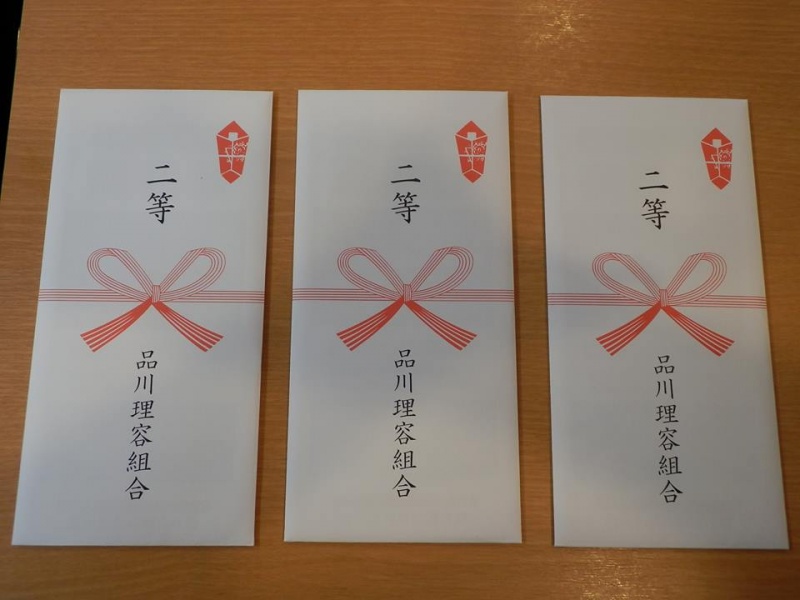 二等
品川理容組合
二等
品川理容組合
二等
品川理容組合